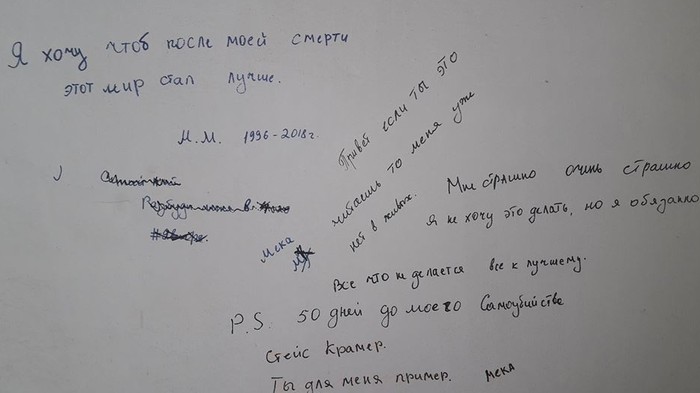 Я хочу чтоб после моей смерти
этот мир стал лучше.
М.М. 1996-2018г.
Привет если ты это
читаешь то меня уже
нет в живых.
Мне страшно очень страшно
Я не хочу это делать, но я обязанно
мека
Все что не делается все к лучшему.
P.S. 50 дней до моего Самоубийства
Стейс Крамер.
Ты для меня пример. мека